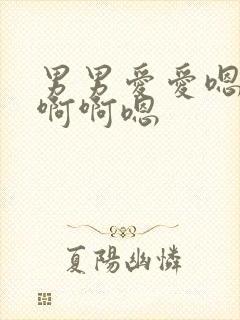 男男愛愛嗯
啊啊嗯
夏陽幽憐